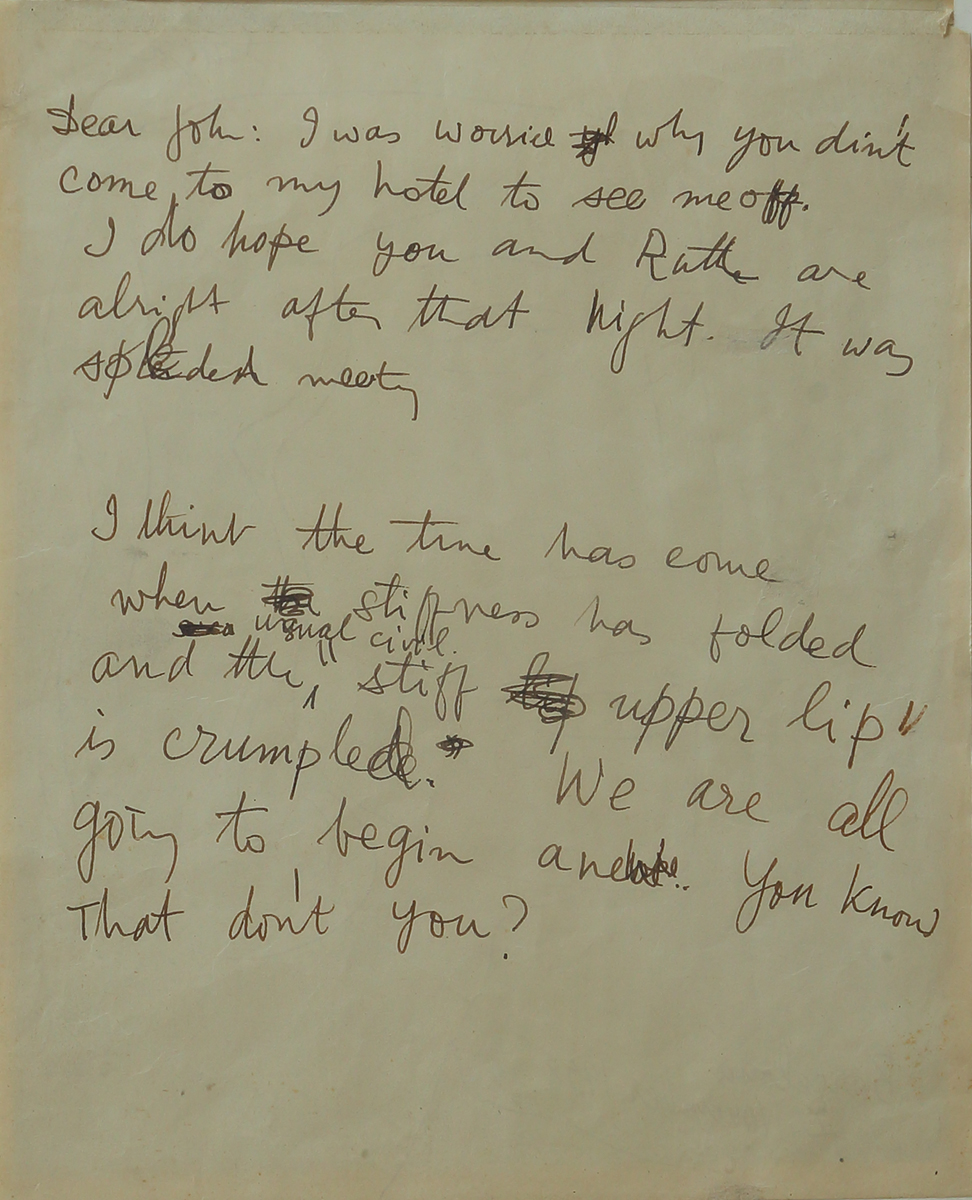 Dear John: I was worrie why you din't
come to my hotel to see me off.
I do hope you and Ruth are
alright after that night. It was
splended meeting
I think the time has come
when stiffness has folded
usual civil.
and the stiff upper lip"
is crumpled. We are all
going to begin anew.. You know
That don't you?